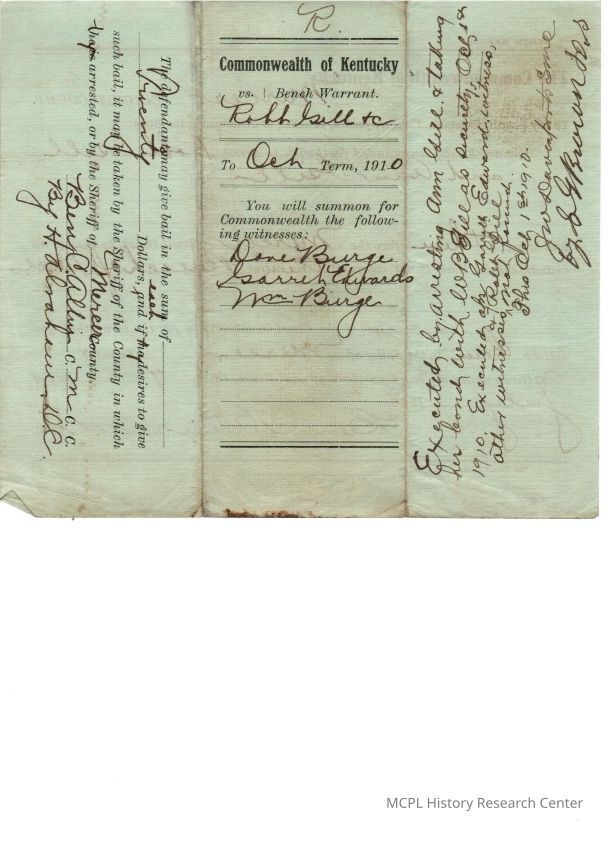 The defendants may give bail in the sum of
Twenty Dollars, each and if he desires to give
such bail, it may be taken by the Sheriff of the County in which
he is arrested, or by the Sheriff of Mercer County.
Ben C. Allin C. M. C. C.
By H. Abraham D.C.
R.
Commonwealth of Kentucky
vs. Bench Warrant.
Robt Gill &c
To Oct Term, 1910
You will summon for
Commonwealth the follow-
ing witnesses:
Dave Burge
Garrett Edwards
Wm Burge
Executed by arresting Ann Gill & taking
her bond with W P Gill as security, Oct 1st
1910. Executed on Garrett Edwards witness,
other witnesses & Robt Gill
not found.
This Oct 1st 1910.
Jno Davenport S M C
by S G Brown D.S
MCPL History Research Center